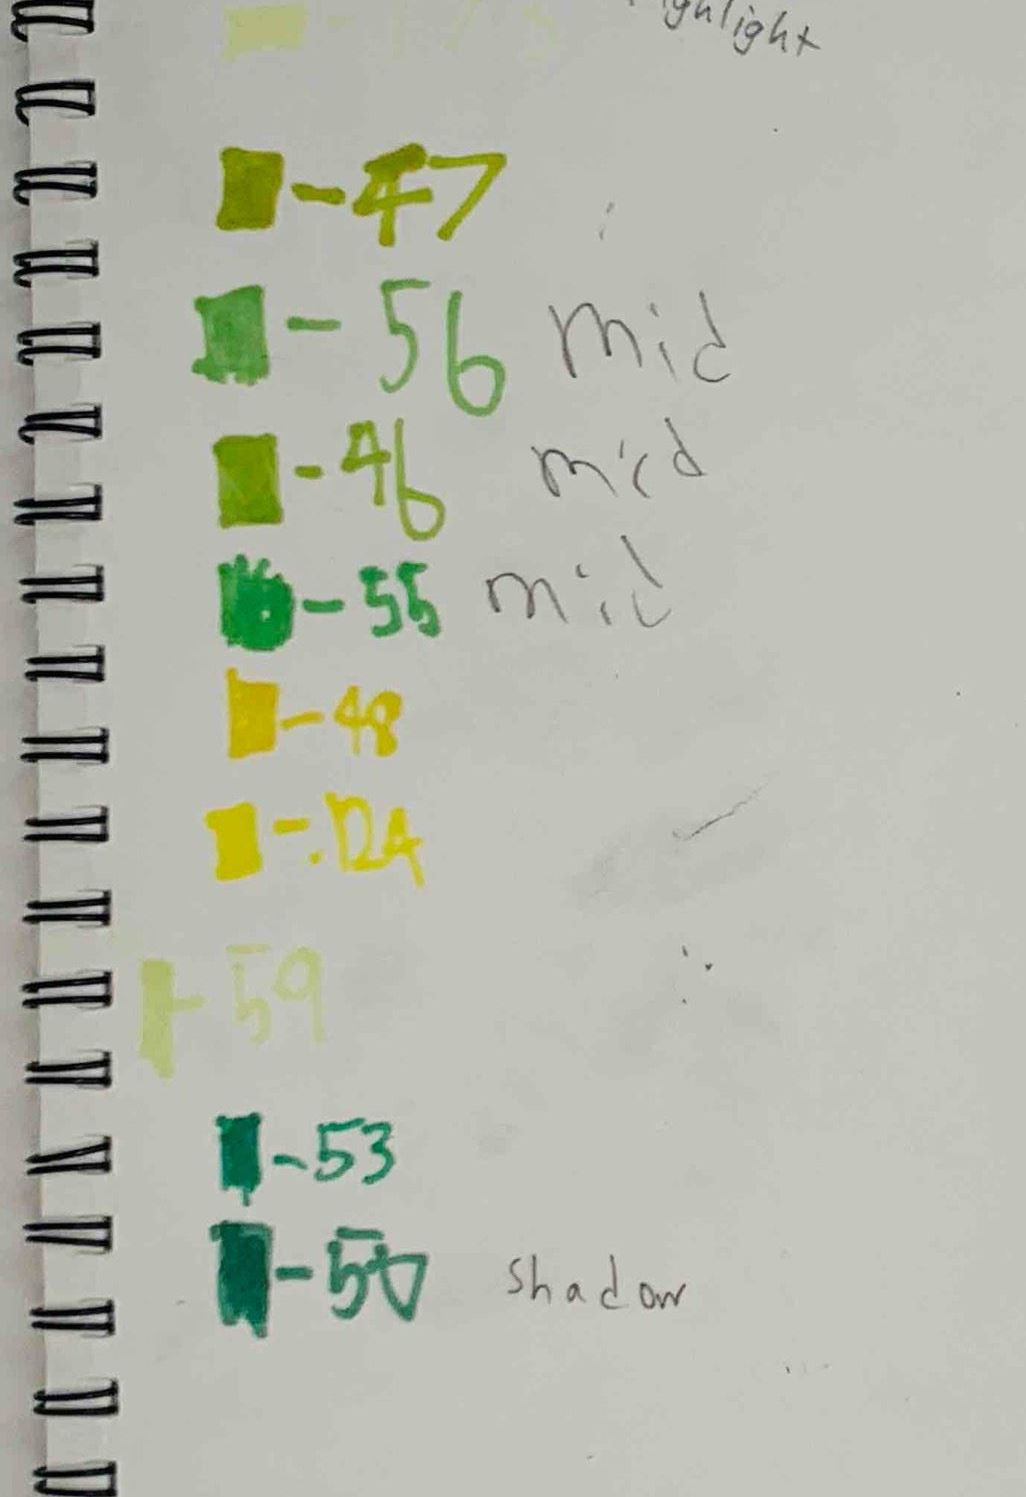 - 47
- 56 mid
- 46 mid
- 55 mid
- 48
- 124
- 59
- 53
- 50 shadow